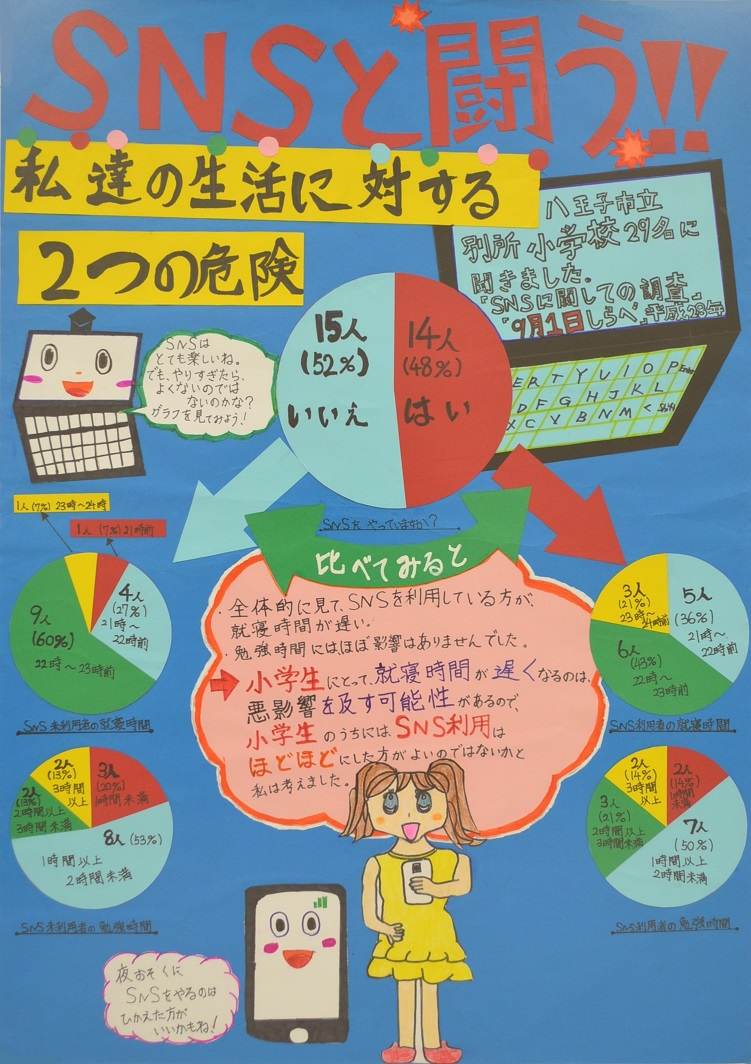 SNSと闘う!!
私達の生活に対する
2つの危険
八王子市立
別所小学校29名に
聞きました。
「SNSに関しての調査」
「9月1日しらべ」平成28年
SNSは
とても楽しいね。
でも、やりすぎたら、
よくないのでは
ないのかな?
グラフを見てみよう!
15人
(52%)
いいえ
14人
(48%)
はい
ERTYUIOP Enter
DFGHJKL
XCVBNM< Shift
SNSをやっていますか?
1人(7%)23時~24時
1人(7%)21時前
4人
(27%)
21時~
22時前
9人
(60%)
22時~23時前
SNS未利用者の就寝時間
比べてみると
・全体的に見て、SNSを利用している方が、
就寝時間が遅い。
・勉強時間にはほぼ影響はありませんでした。
→小学生にとって、就寝時間が遅くなるのは、
悪影響を及す可能性があるので、
小学生のうちにはSNS利用は
ほどほどにした方がよいのではないかと
私は考えました。
3人
(21%)
23時~
24時前
5人
(36%)
21時~
22時前
6人
(43%)
22時~
23時前
SNS利用者の就寝時間
2人
(13%)
3時間
以上
3人
(20%)
1時間未満
2人
(13%)
2時間以上
3時間未満
8人(53%)
1時間以上
2時間未満
SNS未利用者の勉強時間
2人
(14%)
3時間
以上
2人
(14%)
1時間
未満
3人
(21%)
2時間以上
3時間未満
7人
(50%)
1時間以上
2時間未満
SNS利用者の勉強時間
夜おそくに
SNSをやるのは
ひかえた方が
いいかもね!